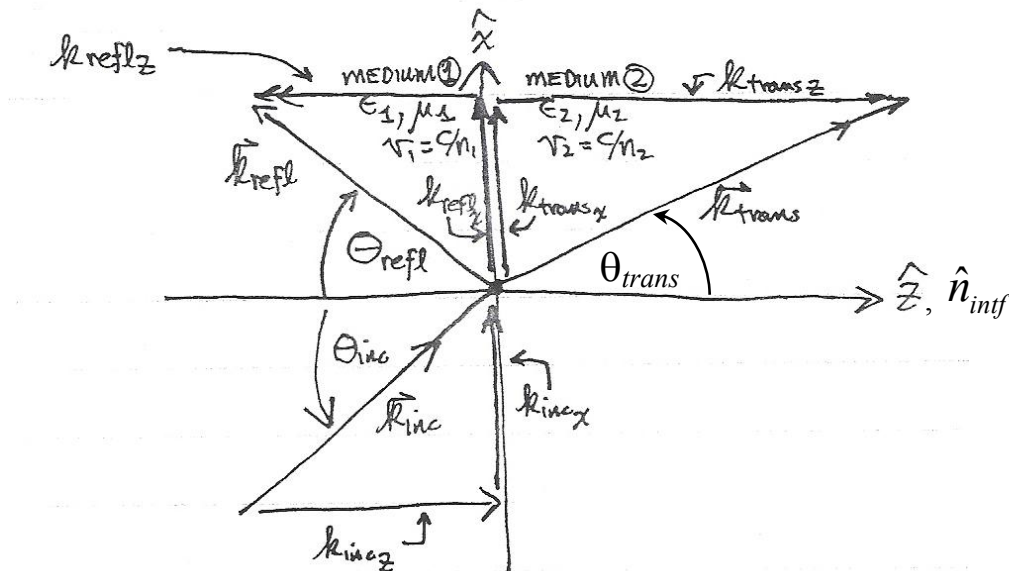 x̂
k_refl_z
MEDIUM ①
MEDIUM ②
k_trans_z
ε₁, μ₁
ε₂, μ₂
v₁ = c/n₁
v₂ = c/n₂
k⃗_refl
k_refl_x
k_trans_x
k⃗_trans
Θ_refl
θ_trans
ẑ, n̂_intf
Θ_inc
k⃗_inc
k_inc_x
k_inc_z